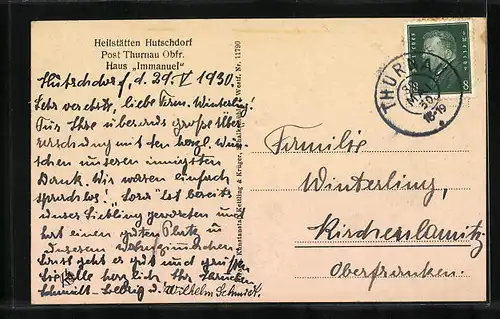 Heilstätten Hutschdorf
Post Thurnau Obfr.
Haus „Immanuel"
Hutschdorf, d. 29. V 1930.
Sehr verehrte, liebe Fam. Winterling!
Für Ihre überaus große Über-
raschung mit den hzgl. Wün-
schen unseren innigsten
Dank. Wir waren einfach
sprachlos! „ ist bereits
unser Liebling geworden und
hat einen guten Platz in
unserem
Sonst geht es gut und grüßen
Sie alle herzlich Ihr
Schmidt- u. Wilhelm Schmidt.
Kettling & Krüger,
Nr. 11790
THURNAU
Familie
Winterling,
Kirchenlamitz
Oberfranken.